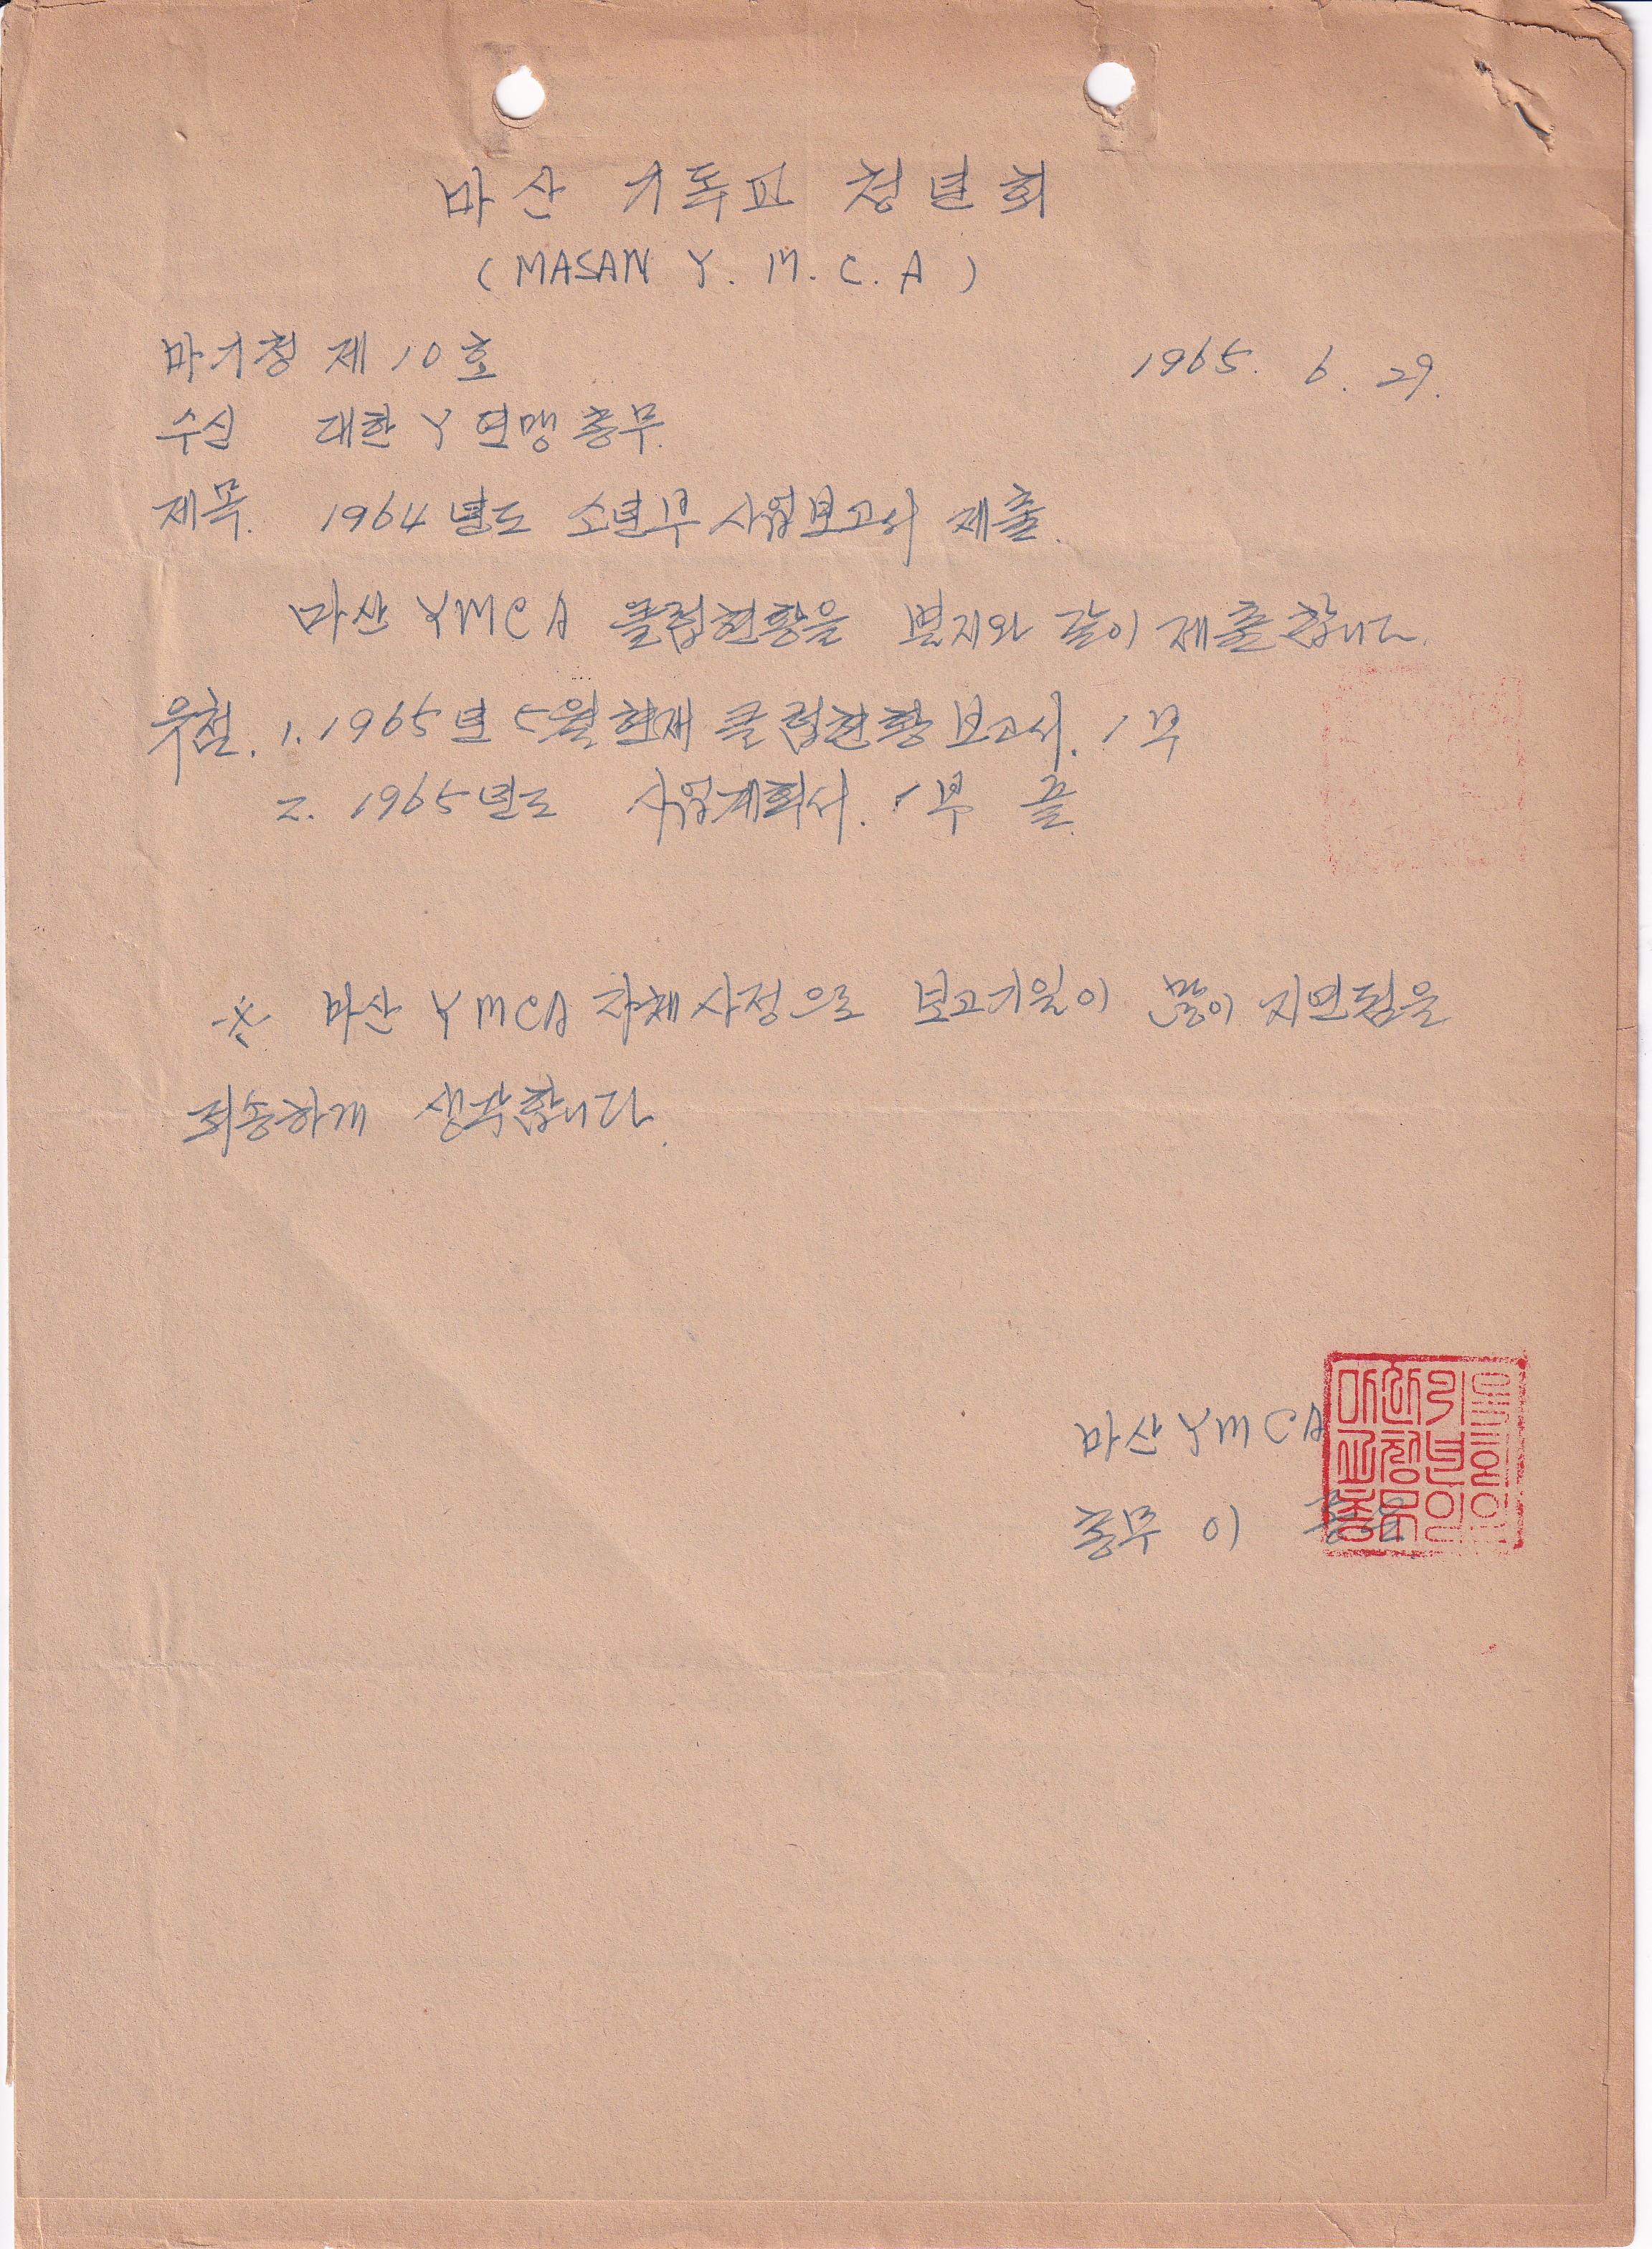 마산 기독교 청년회
(MASAN Y. M. C. A)
마기청 제 10호
1965. 6. 29.
수신 대한 Y 연맹 총무.
제목. 1964년도 소년부 사업보고서 제출.
마산 YMCA 클럽현황을 별지와 같이 제출합니다.
우첨. 1. 1965년 5월 현재 클럽현황 보고서. 1부
2. 1965년도 사업계획서. 1부 끝.
※ 마산 YMCA 자체사정으로 보고기일이 많이 지연됨을
죄송하게 생각합니다.
마산 YMCA
총무 이
마산기독
교청년회
총무인인